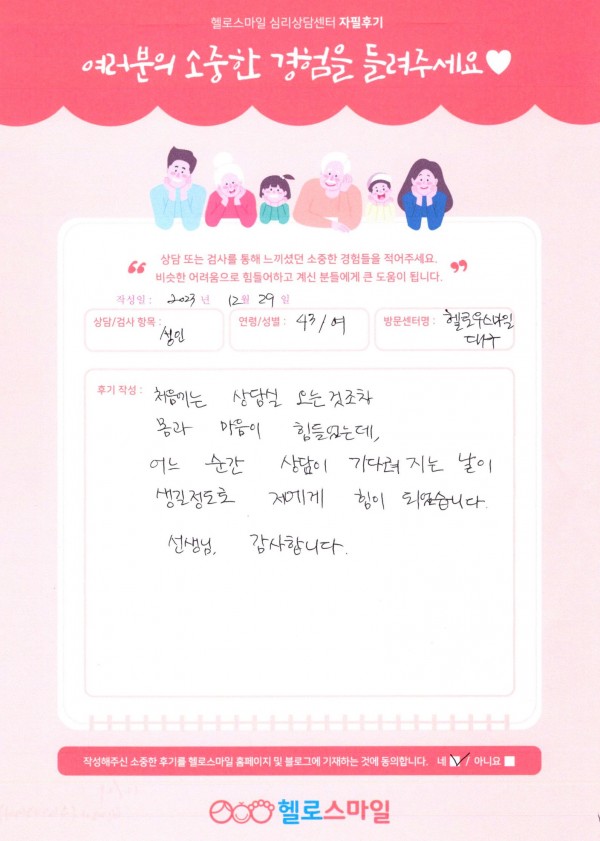 헬로스마일 심리상담센터 자필후기
여러분의 소중한 경험을 들려주세요♥
“ 상담 또는 검사를 통해 느끼셨던 소중한 경험들을 적어주세요.
비슷한 어려움으로 힘들어하고 계신 분들에게 큰 도움이 됩니다. ”
작성일 : 2023 년 12월 29 일
상담/검사 항목 : 성인
연령/성별 : 43/여
방문센터명 : 헬로우스마일
대구
후기 작성 : 처음에는 상담실 오는것조차
몸과 마음이 힘들었는데,
어느 순간 상담이 기다려 지는 날이
생길정도로 제에게 힘이 되었습니다.
선생님, 감사합니다.
작성해주신 소중한 후기를 헬로스마일 홈페이지 및 블로그에 기재하는 것에 동의합니다. 네 ✓ / 아니요
헬로스마일